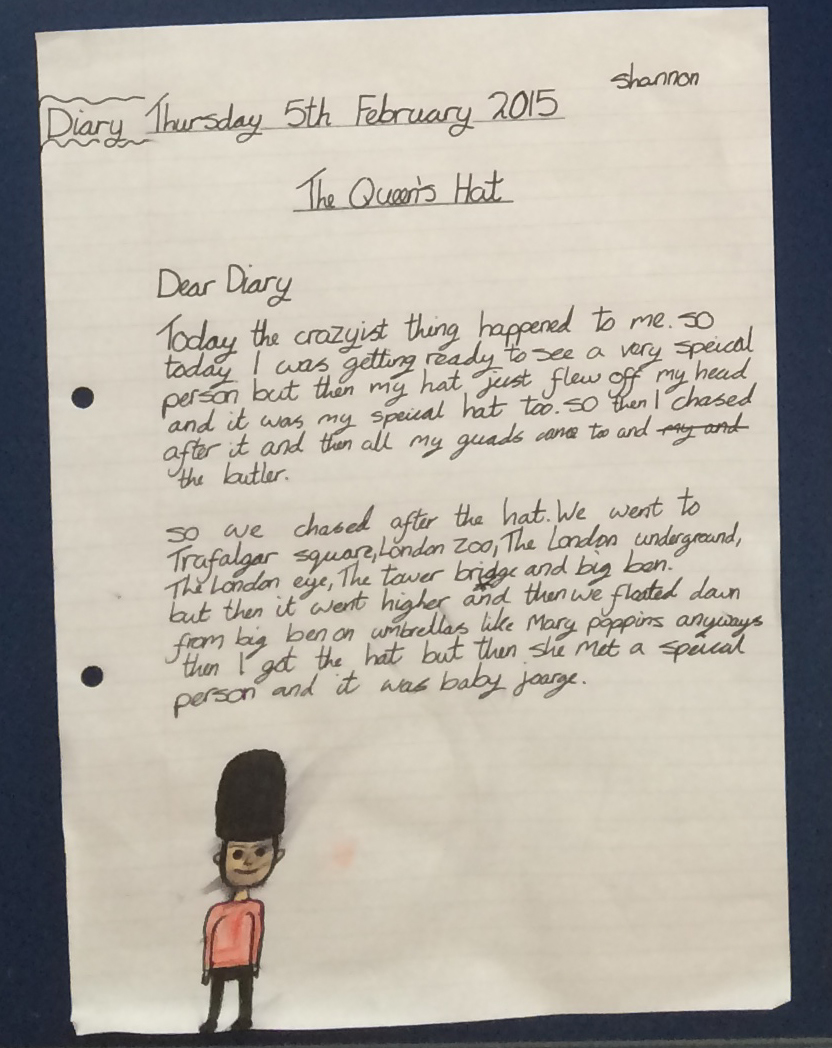 shannon
Diary Thursday 5th February 2015
The Queen's Hat
Dear Diary
Today the crazyist thing happened to me. so
today I was getting ready to see a very speical
person but then my hat just flew off my head
and it was my speical hat too. so then I chased
after it and then all my guads came too and my and
the butler.
so we chased after the hat. We went to
Trafalgar square, London Zoo, The London underground,
The London eye, The tower bridge and big ben.
but then it went higher and then we floated down
from big ben on umbrellas like Mary poppins anyways
then I got the hat but then she met a speical
person and it was baby joarge.